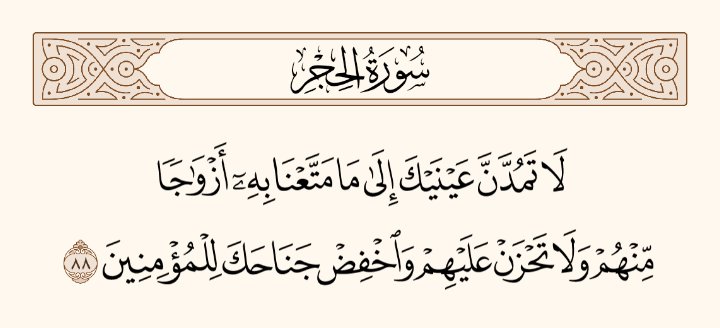 سُورَةُ الحِجْرِ
لَا تَمُدَّنَّ عَيْنَيْكَ إِلَىٰ مَا مَتَّعْنَا بِهِۦٓ أَزْوَٰجًا
مِّنْهُمْ وَلَا تَحْزَنْ عَلَيْهِمْ وَٱخْفِضْ جَنَاحَكَ لِلْمُؤْمِنِينَ ٨٨